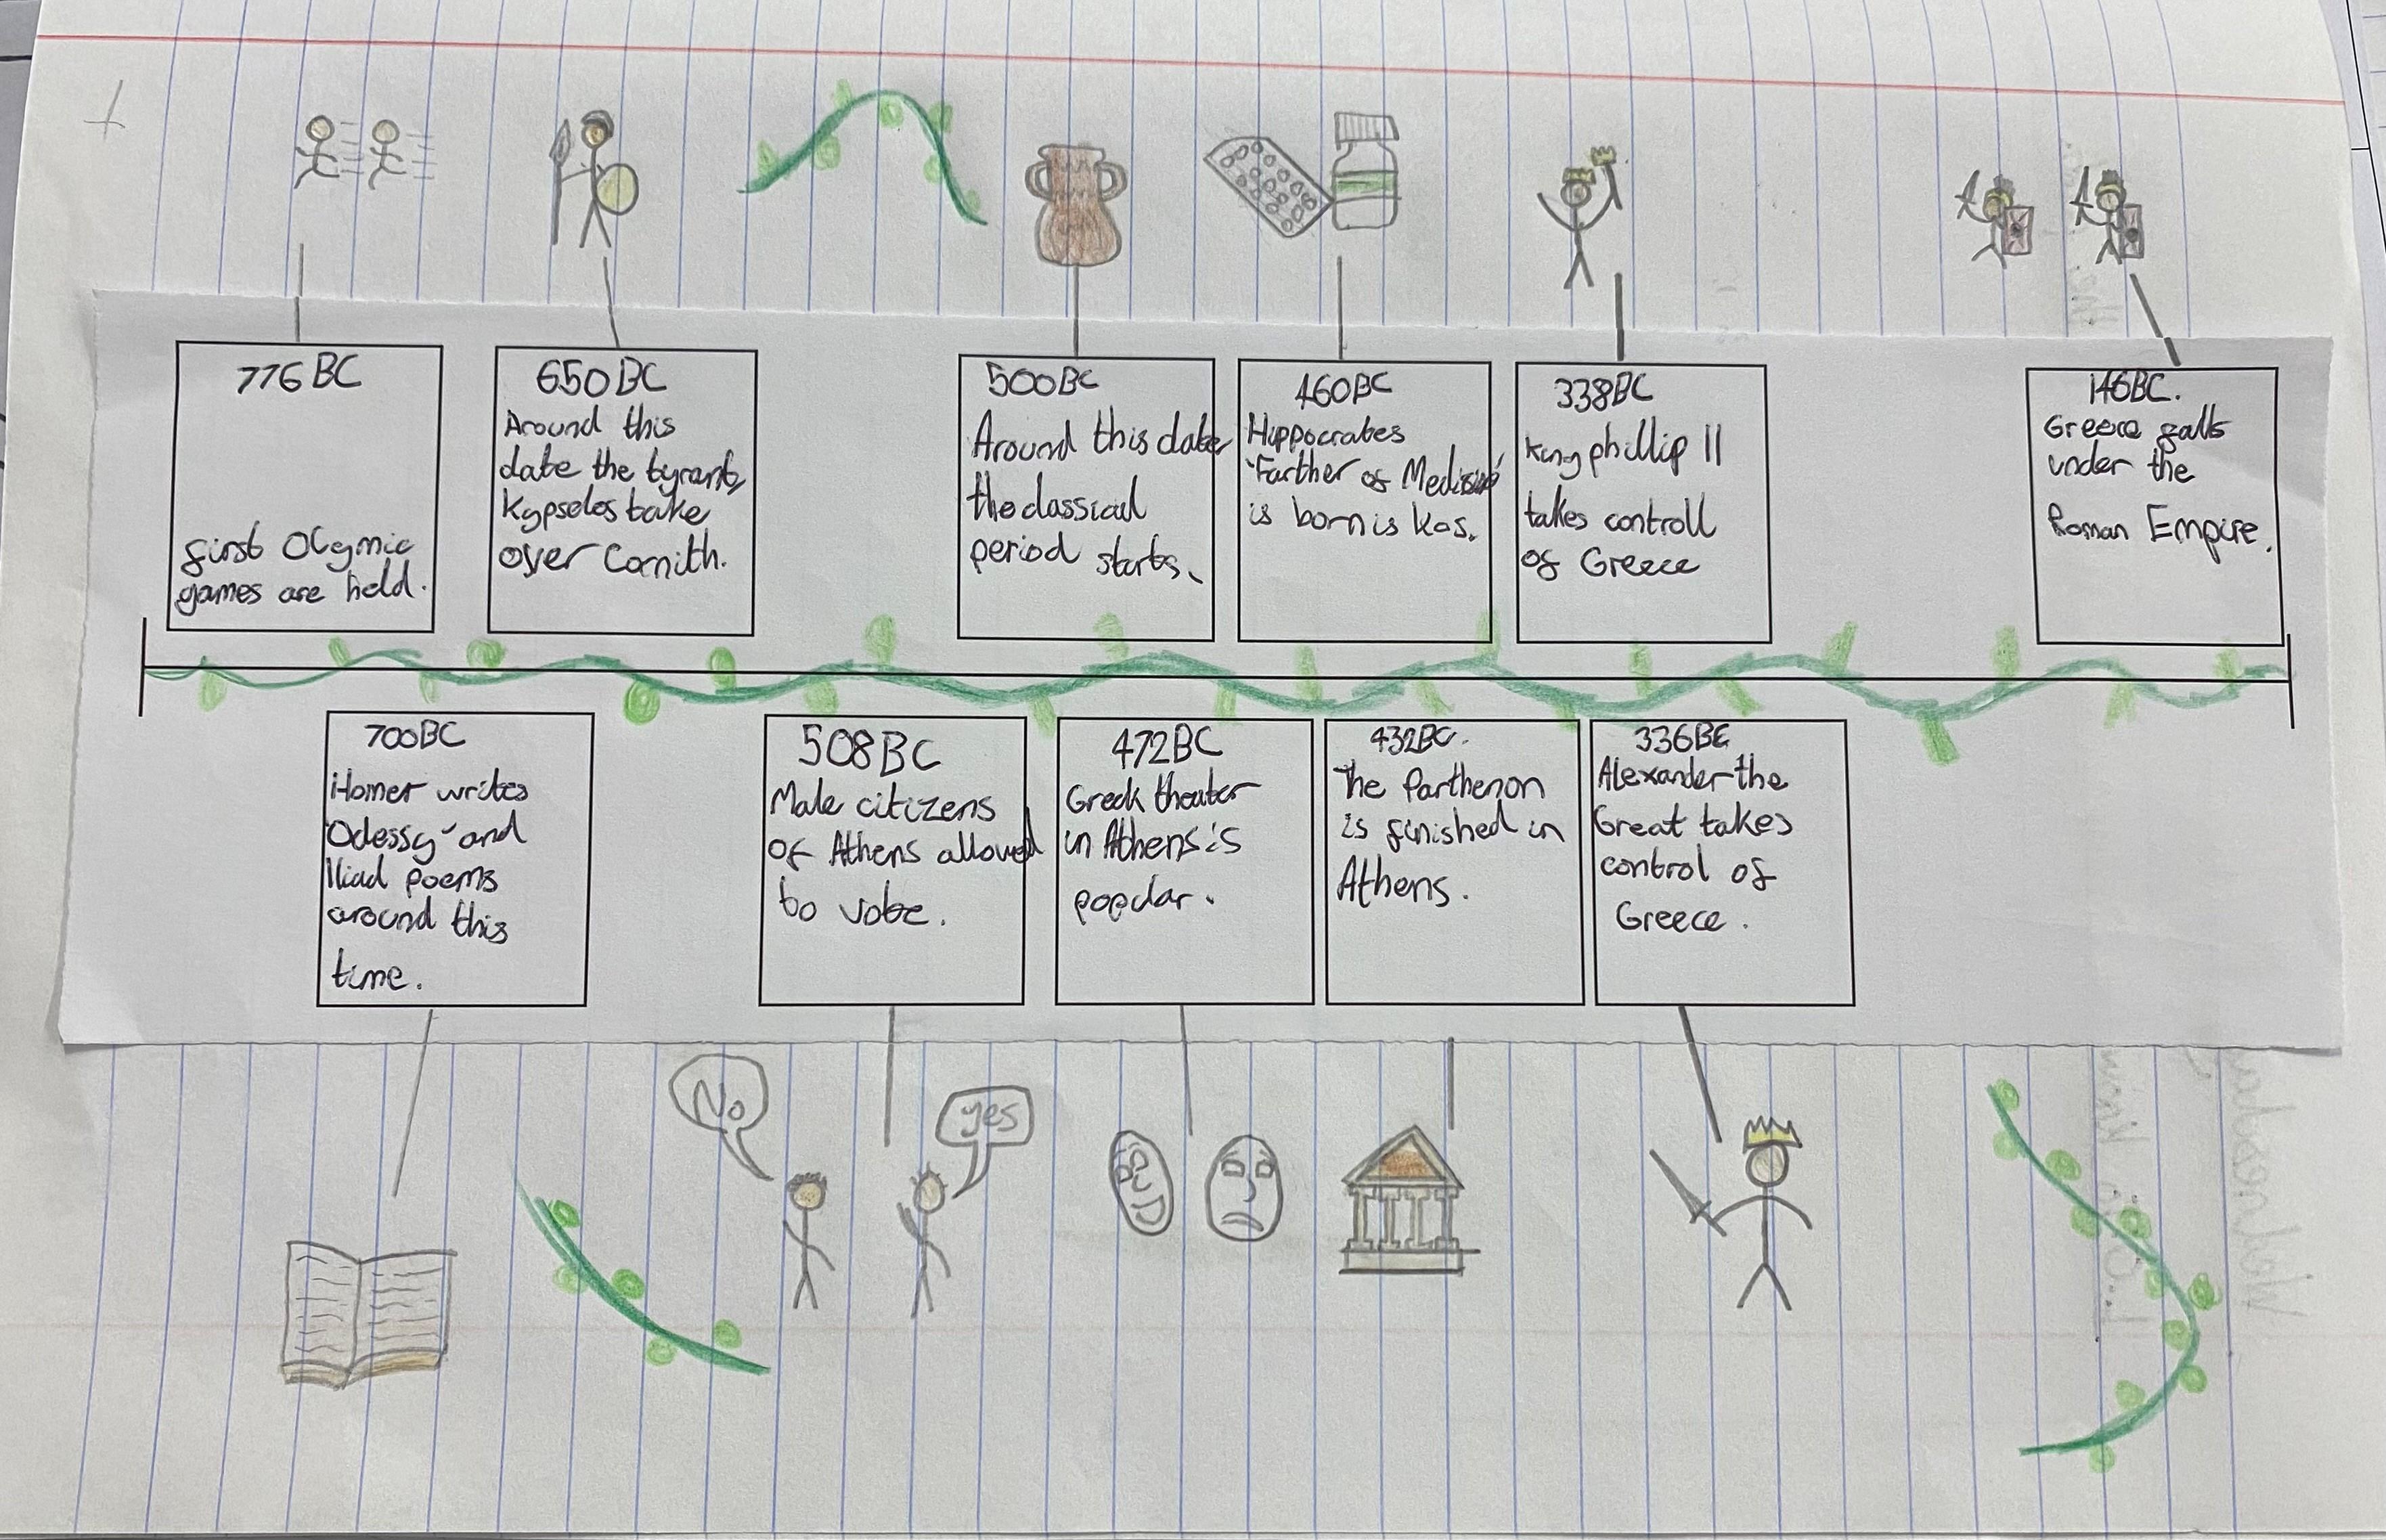 776BC
first Olymic
games are held.
650BC
Around this
date the tyrants
Kypselos take
over Cornith.
500BC
Around this date
the classical
period starts.
460BC
Hippocrates
'Farther of Medisine'
is born is Kos.
338BC
King phillip II
takes controll
of Greece
146BC.
Greece falls
under the
Roman Empire.
700BC
Homer writes
'Odessy' and
Iliad poems
around this
time.
508BC
Male citizens
of Athens allowed
to vote.
472BC
Greek theater
in Athens is
popular.
432BC.
The Parthenon
is finished in
Athens.
336BC
Alexander the
Great takes
control of
Greece.
No
yes